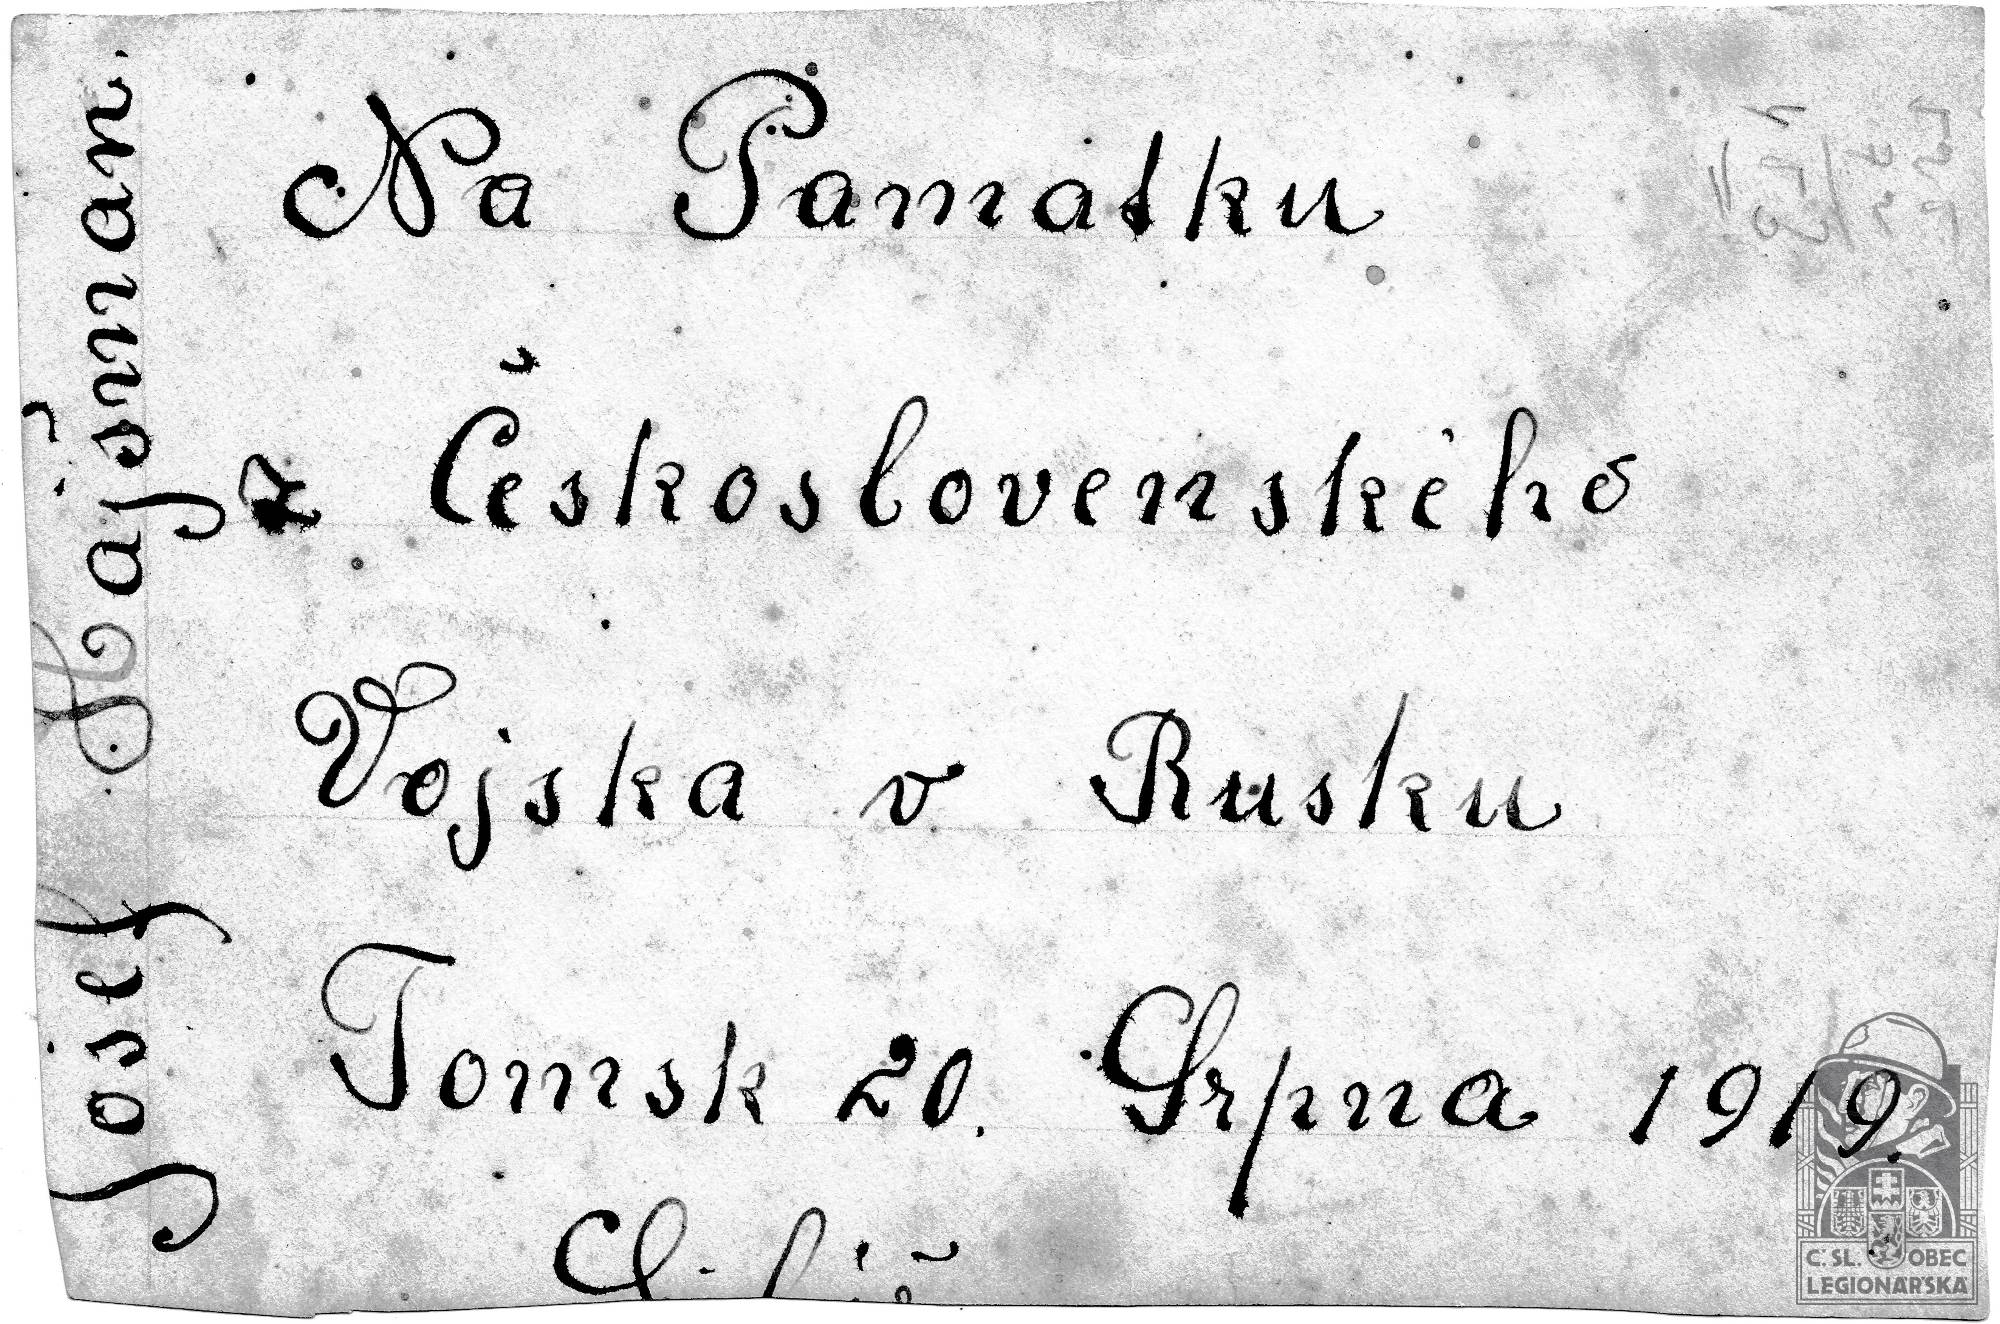 Na Pamatku
z Československého
Vojska v Rusku
Tomsk 20. Grpna 1919.
Josef Hajšman.
Č. SL. OBEC
LEGIONÁŘSKÁ